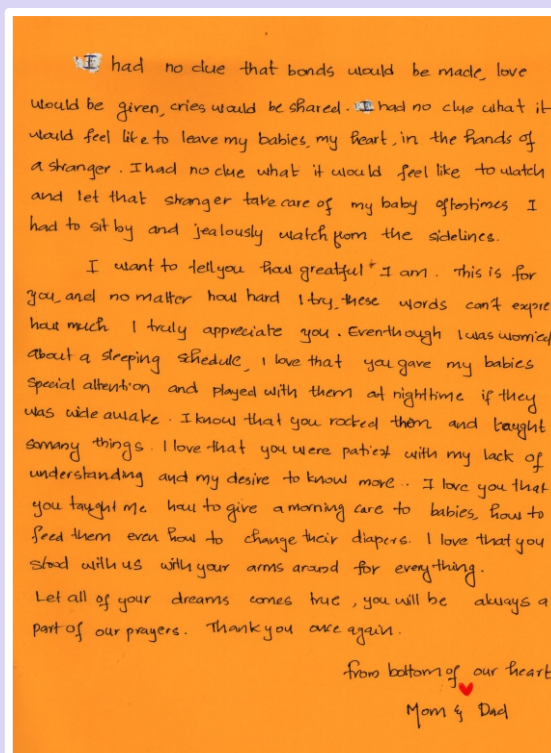 I had no clue that bonds would be made, love
would be given, cries would be shared. I had no clue what it
would feel like to leave my babies, my heart, in the hands of
a stranger. I had no clue what it would feel like to watch
and let that stranger take care of my baby oftentimes I
had to sit by and jealously watch from the sidelines.
I want to tell you how greatful I am. This is for
you, and no matter how hard I try, these words can't expre
how much I truly appreciate you. Eventhough I was worried
about a sleeping schedule, I love that you gave my babies
special attention and played with them at nighttime if they
was wide awake. I know that you rocked them and taught
somany things. I love that you were patiest with my lack of
understanding and my desire to know more.. I love you that
you taught me how to give a morning care to babies, how to
feed them even how to change their diapers. I love that you
stood with us with your arms around for everything.
Let all of your dreams comes true, you will be always a
part of our prayers. Thank you once again.
from bottom of our heart
Mom & Dad